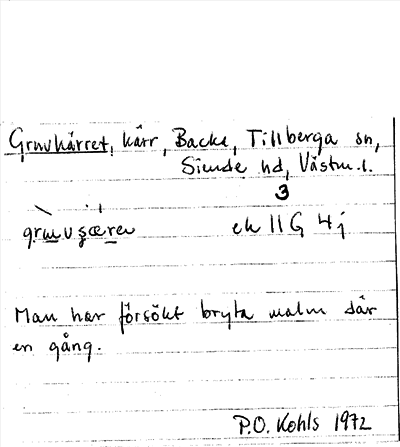 Gruvkärret, kärr, Backe, Tillberga sn,
Siende hd, Västm. l.
3
ek 11G 4j
Man har försökt bryta malm där
en gång.
P.O. Kohls 1972